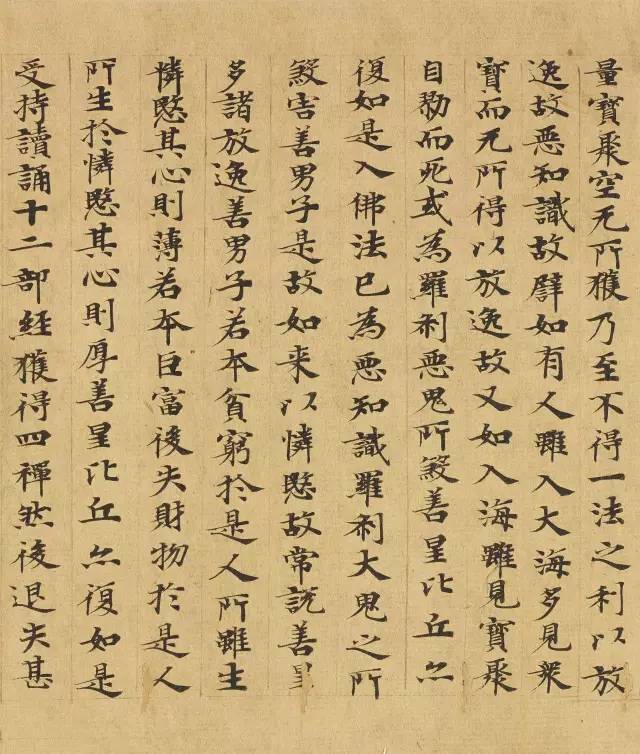 量寶聚空无所獲乃至不得一法之利以放
逸故惡知識故譬如有人雖入大海多見衆
寶而无所得以放逸故又如入海雖見寶聚
自勠而死或為羅刹惡鬼所煞善星比丘亦
復如是入佛法已為惡知識羅刹大鬼之所
煞害善男子是故如来以憐愍故常説善星
多諸放逸善男子若本貧窮於是人所雖生
憐愍其心則薄若本巨富後失財物於是人
所生於憐愍其心則厚善星比丘亦復如是
受持讀誦十二部經獲得四禪然後退失甚